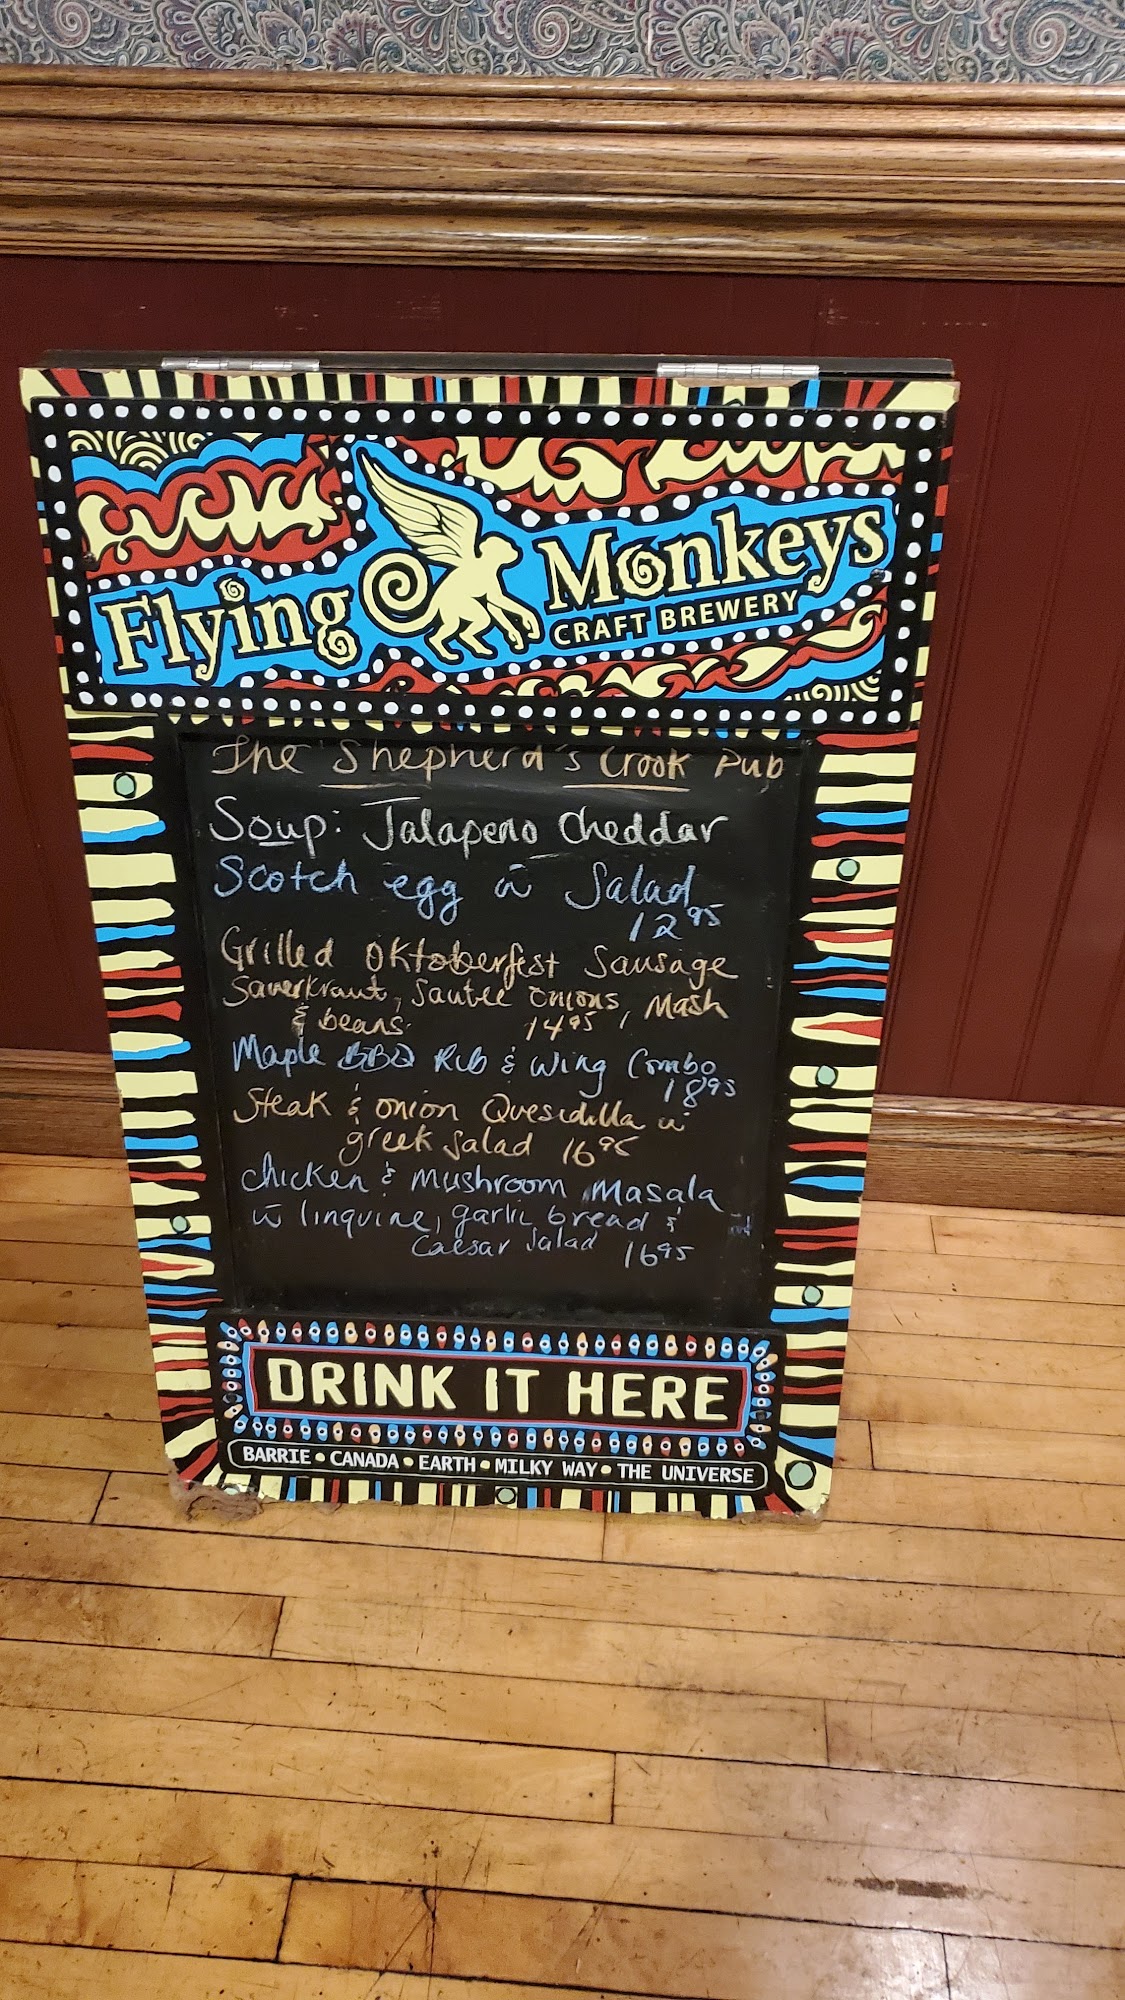 Flying Monkeys
CRAFT BREWERY
The Shepherd's Crook Pub
Soup: Jalapeno Cheddar
Scotch egg w Salad
12 95
Grilled Oktoberfest Sausage
Saurkraut, Sautee onions, Mash
& beans. 14 95
Maple BBQ Rib & Wing Combo
18 95
Steak & onion Quesidilla w
greek Salad 16 95
Chicken & Mushroom Masala
w linguine, garlic bread &
Caesar Salad 16 95
DRINK IT HERE
BARRIE • CANADA • EARTH • MILKY WAY • THE UNIVERSE